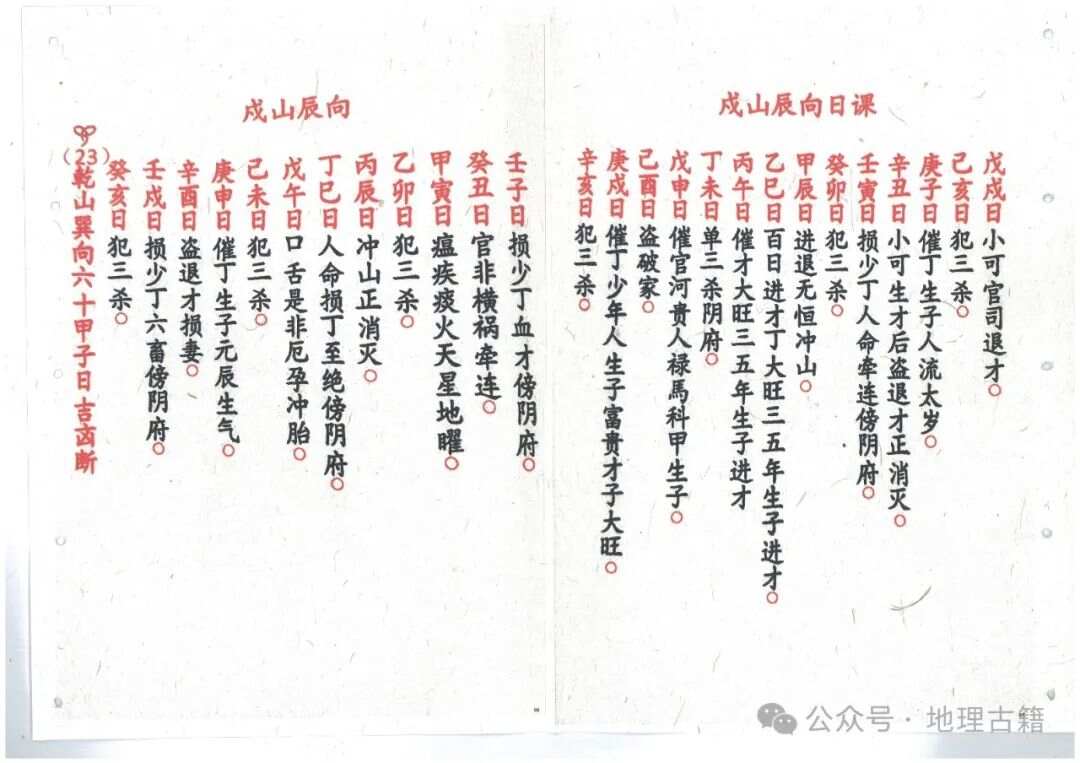 戌山辰向日课
戊戌日小可官司退才○
己亥日犯三杀○
庚子日催丁生子人流太岁○
辛丑日小可生才后盗退才正消灭○
壬寅日损少丁人命牵连傍阴府○
癸卯日犯三杀○
甲辰日进退无恒冲山○
乙巳日百日进才丁大旺三五年生子进才○
丙午日催才大旺三五年生子进才
丁未日单三杀阴府○
戊申日催官河贵人禄馬科甲生子○
己酉日盗破家○
庚戌日催丁少年人生子富贵才子大旺○
辛亥日犯三杀○
戌山辰向
壬子日损少丁血才傍阴府○
癸丑日官非横祸牵连○
甲寅日瘟疾痰火天星地曜○
乙卯日犯三杀○
丙辰日冲山正消灭○
丁巳日人命损丁至绝傍阴府○
戊午日口舌是非厄孕冲胎○
己未日犯三杀○
庚申日催丁生子元辰生气○
辛酉日盗退才损妻○
壬戌日损少丁六畜傍阴府○
癸亥日犯三杀○
（23）乾山巽向六十甲子日吉凶断
公众号·地理古籍